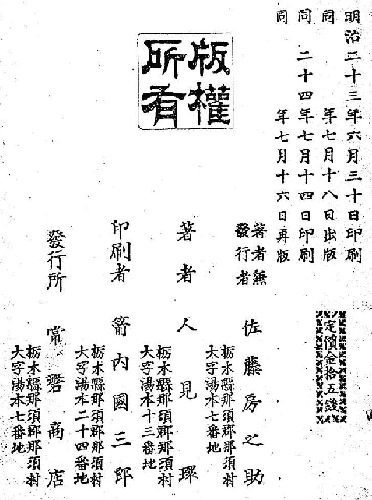 明治二十三年六月三十日印刷
同　年七月十八日出版
同　二十四年七月十四日印刷
同　年七月十六日再版
版權
所有
定價金拾五錢
著者兼
發行者
佐藤房之助
栃木縣那須郡那須村
大字湯本七番地
著者　人見
栃木縣那須郡那須村
大字湯本十三番地
印刷者　箭内國三郎
栃木縣那須郡那須村
大字湯本二十四番地
發行所　常磐商店
栃木縣那須郡那須村
大字湯本七番地